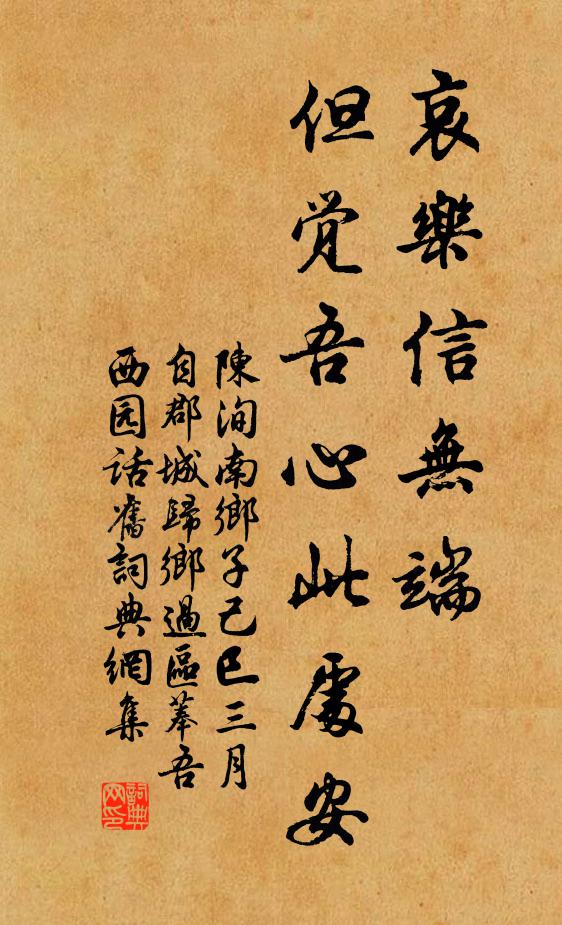 哀樂信無端
但覺吾心此處安
陳洵南鄉子己巳三月
自郡城歸鄉過區菶吾
西园話舊詞典網集
詞典网印